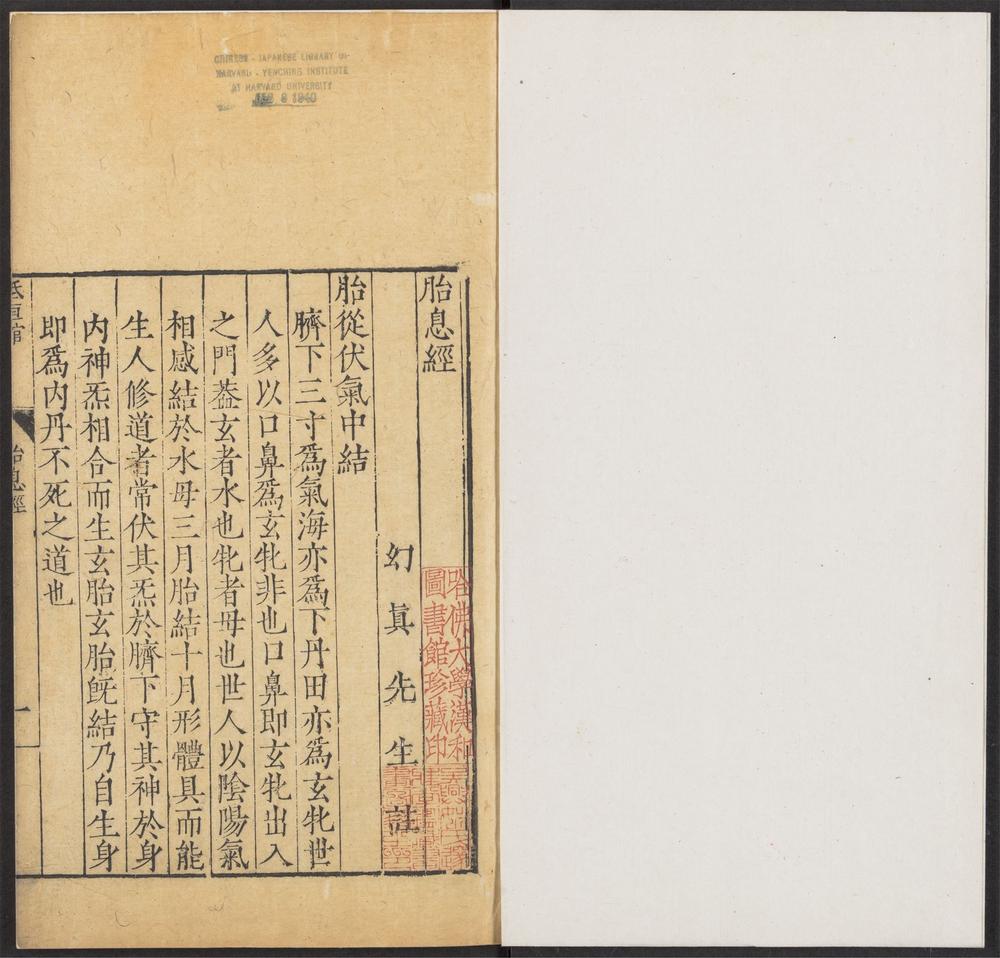 CHINESE - JAPANESE LIBRARY OF
HARVARD - YENCHING INSTITUTE
AT HARVARD UNIVERSITY
8 1940
胎息經
幻眞先生註
胎從伏氣中結
臍下三寸爲氣海亦爲下丹田亦爲玄牝世
人多以口鼻爲玄牝非也口鼻即玄牝出入
之門葢玄者水也牝者母也世人以陰陽氣
相感結於水母三月胎結十月形體具而能
生人修道者常伏其炁於臍下守其神於身
内神炁相合而生玄胎玄胎旣結乃自生身
即爲内丹不死之道也
胎息經
一
哈佛大學漢和
圖書館珍藏印